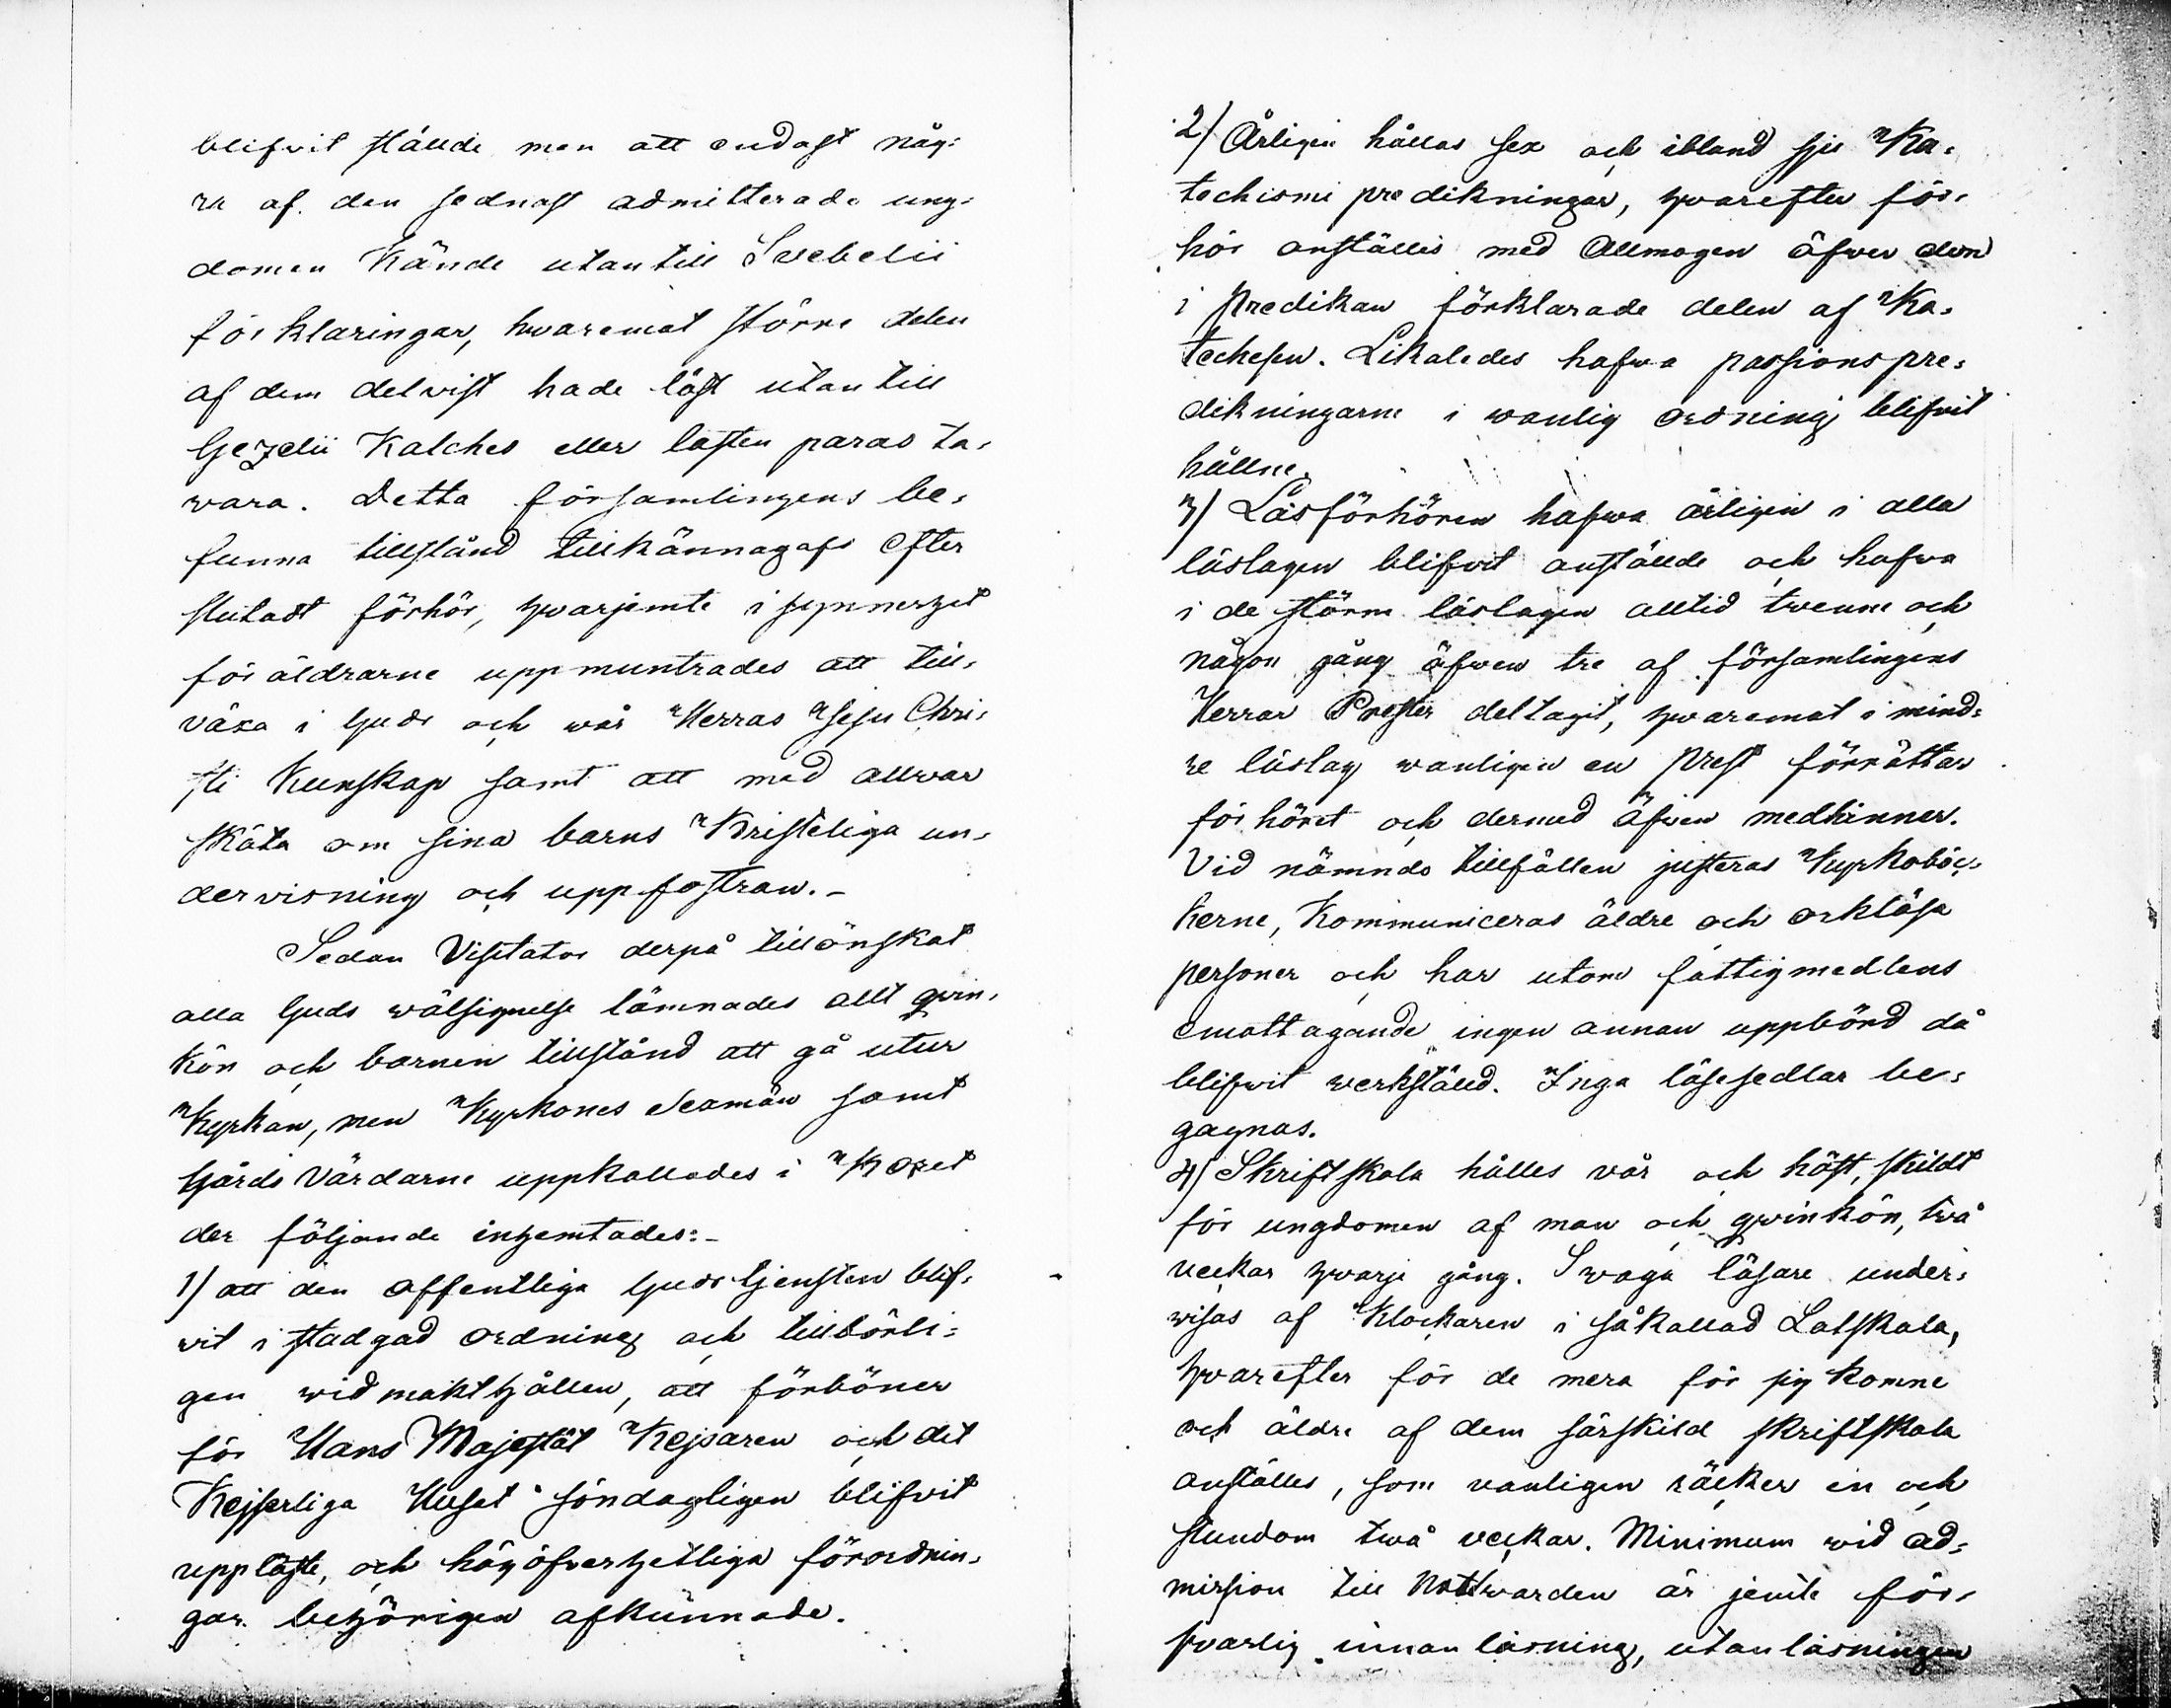 blifvit stälde men att endast någ-
ra af den sednast admitterade ung-
domen kände utantill Svebelii
förklaringar, hwaremot större delen
af dem delvist hade läst utantill
Gezelii Katches eller lasten paras ta-
vara. Detta församlingens be-
funna tillstånd tillkännagafs efter
slutadt förhör, hvarjemte i synnerhet
föräldrarne uppmuntrades att till-
växa i Guds och wår Herras Jesu Chri-
sti Kunskap samt att med allwar
sköta om sina barns Kristeliga un-
dervisning och uppfostran.-
Sedan Visitator derpå tillönskat
alla Guds wälsignelse lämnades allt qvin-
kön och barnen tillstånd att gå utur
Kyrkan, men Kyrkones Sexmän samt
Gårds Värdarne uppkallades i Koret
der följande inhemtades:-
1) att den offentliga Gudstjensten blif-
vit i stadgad ordning och tillbörli-
gen wid makt hållen, att förböner
för Hans Majestät Kejsaren och det
Kejserliga Huset söndagligen blifvit
uppläste, och högöfverhetliga förordnin-
gar behörigen afkunnade.
2) Årligen hållas sex och ibland sju Ka-
techismi predikningar, hvarefter för-
hör anställes med Allmogen öfwer den
i Predikan förklarade delen af Ka-
techesen. Likaledes hafwa passionspre-
dikningarne i wanlig ordning blifvit
hållne.
3) Läsförhören hafwa årligen i alla
läslagen blifvit anstälde och hafva
i de större läslagen alltid twenne och
någon gång äfwen tre af församlingens
Herrar Prester deltagit, hvaremot i mind-
re läslag wanligen en Prest förrättar
förhöret och dermed äfwen medhinner.
Vid nämnds tillfällen justeras Kyrkoböc-
kerne, Kommuniceras äldre och orklösa
personer och har utom fattigmedlens
emottagande ingen annan uppbörd då
blifwit werkstäld. Inga läsesedlar be-
gagnas.
4) Skriftskola hålles vår och höst, skildt
för ungdomen af man och qvinkön, två
veckor hvarje gång. Swaga läsare under-
wisas af Klockaren i såkallad Latskola,
hvarefter för de mera för sig komne
och äldre af dem särskild skriftskola
anställes, som vanligen räcker en och
stundom twå veckor. Minimum wid ad-
mission till Nattwarden är jemte för-
svarlig innanläsning, utanläsningen